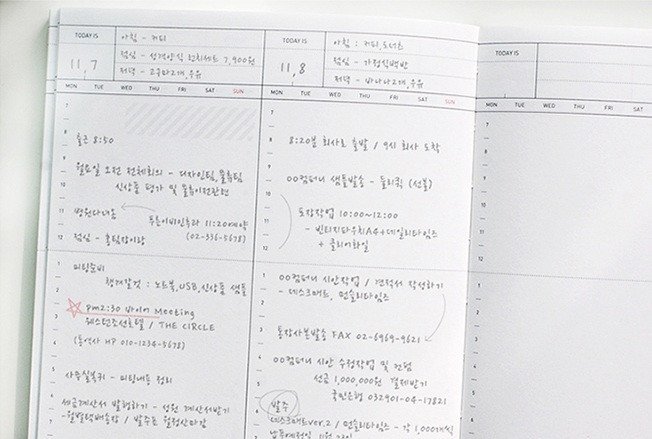 TODAY IS
11, 7
아침 - 커피
점심 - 성게알식 런치세트 7,900원
저녁 - 고구마2개, 우유
MON TUE WED THU FRI SAT SUN
7
8
출근 8:50
9
월요일 오전 전체회의 - 디자인팀, 물류팀
10
신상품 평가 및 물류이전관련
11
병원다녀옴
푸른이비인후과 11:20예약
(02-336-5678)
12
점심 - 홍팀장이랑
1
미팅준비
챙겨갈것 : 노트북, USB, 신상품 샘플
2
pm2:30 바이어 Meeting
3
웨스턴조선호텔 / THE CIRCLE
(통역사 HP 010-1234-5678)
4
5
사무실복귀 - 미팅내용 정리
6
세금계산서 발행하기 - 성원 계산서받기
- 월별택배송장 / 발주표 월정산마감
TODAY IS
11, 8
아침 : 커피, 도너츠
점심 - 가정식백반
저녁 - 바나나2개, 우유
MON TUE WED THU FRI SAT SUN
7
8
8:20분 회사로 출발 / 9시 회사 도착
9
00컴퍼니 샘플발송 - 퀵 (선불)
10
11
도장작업 10:00~12:00
- 빈티지다우치A4+데일리타임즈
+ 클리어화일
12
1
00컴퍼니 시안작업 / 견적서 작성하기
- 데스크매트, 먼슬리타임즈
2
3
통장사본발송 FAX 02-6969-9621
4
00컴퍼니 시안 수정작업 및 컨펌
선금 1,000,000원 결제받기
5
국민은행 032901-04-17821
6
발주
- 데스크매트ver.2 / 먼슬리타임즈 - 각 1,000개씩
납품예정일 11월
TODAY IS
MON TUE WED THU FRI SAT SUN